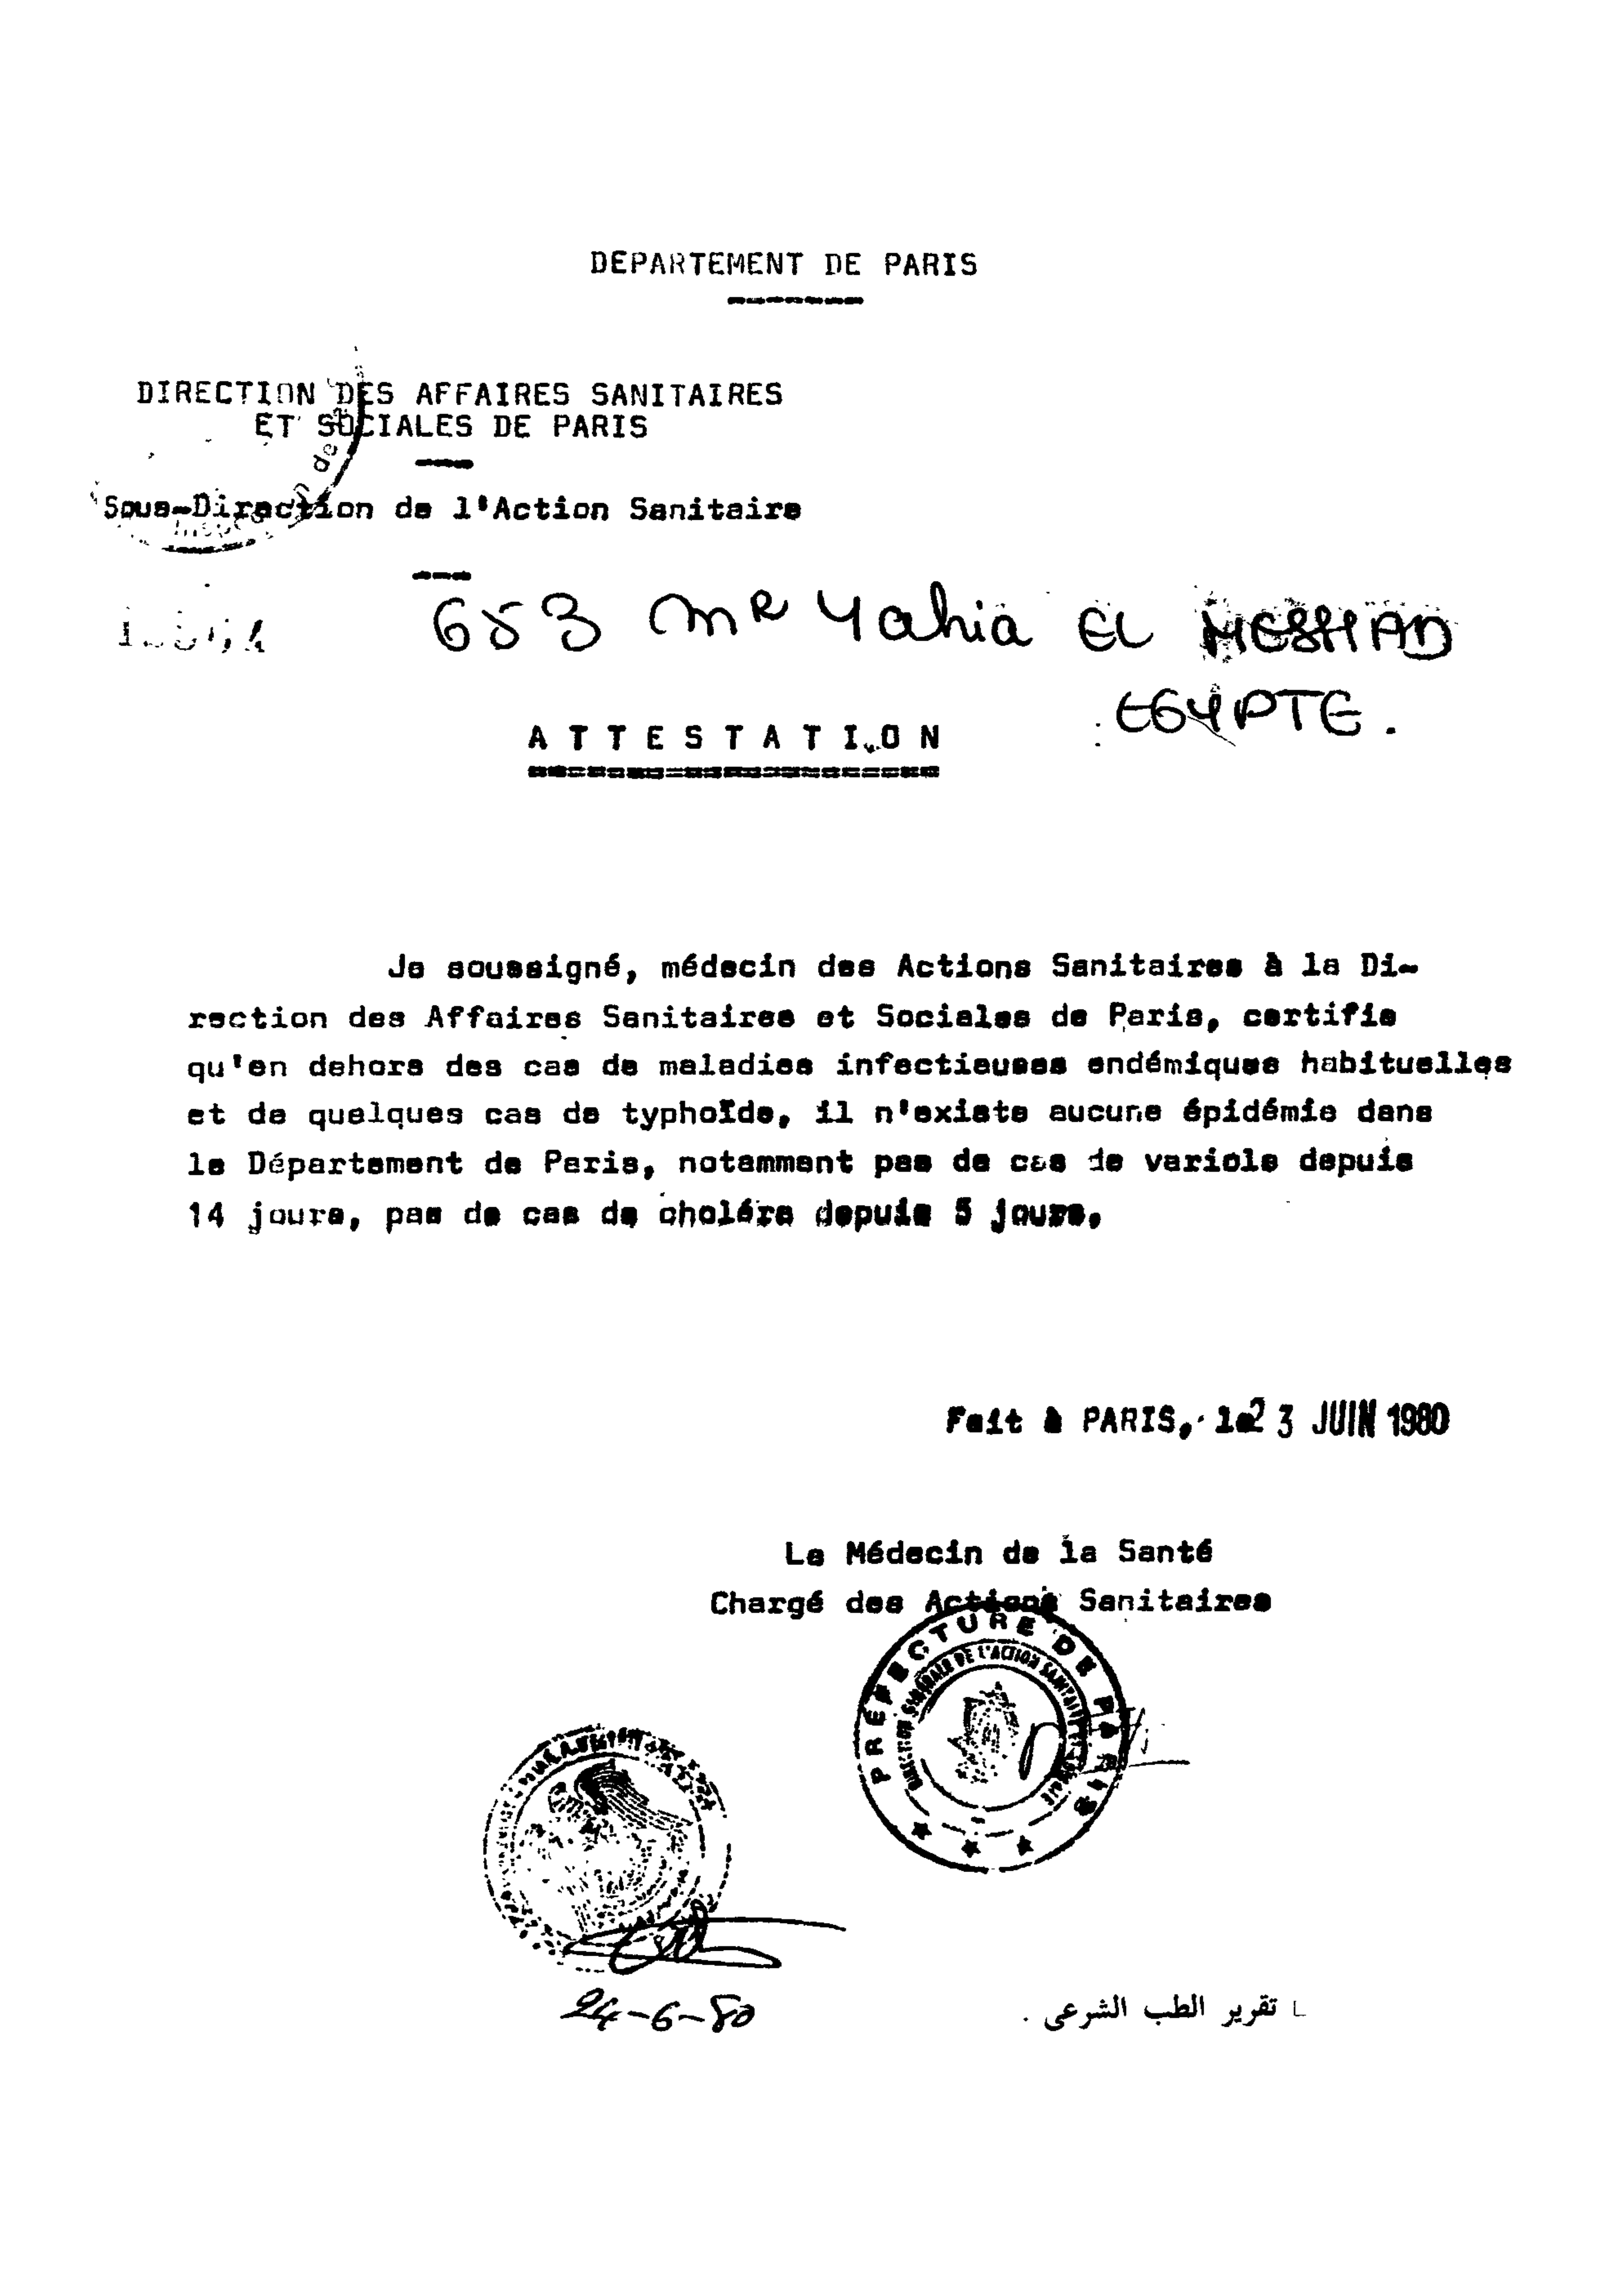 DEPARTEMENT DE PARIS
DIRECTION DES AFFAIRES SANITAIRES
ET SOCIALES DE PARIS
Sous-Direction de l'Action Sanitaire
653 Mr Yahia EL MESHAD
EGYPTE.
ATTESTATION
Je soussigné, médecin des Actions Sanitaires à la Di-
rection des Affaires Sanitaires et Sociales de Paris, certifie
qu'en dehors des cas de maladies infectieuses endémiques habituelles
et de quelques cas de typhoïde, il n'existe aucune épidémie dans
le Département de Paris, notamment pas de cas de variole depuis
14 jours, pas de cas de choléra depuis 5 jours.
Fait à PARIS, le 23 JUIN 1980
Le Médecin de la Santé
Chargé des Actions Sanitaires
PREFECTURE DE PARIS
GENERALE DE L'ACTION
24-6-80
تقرير الطب الشرعى .